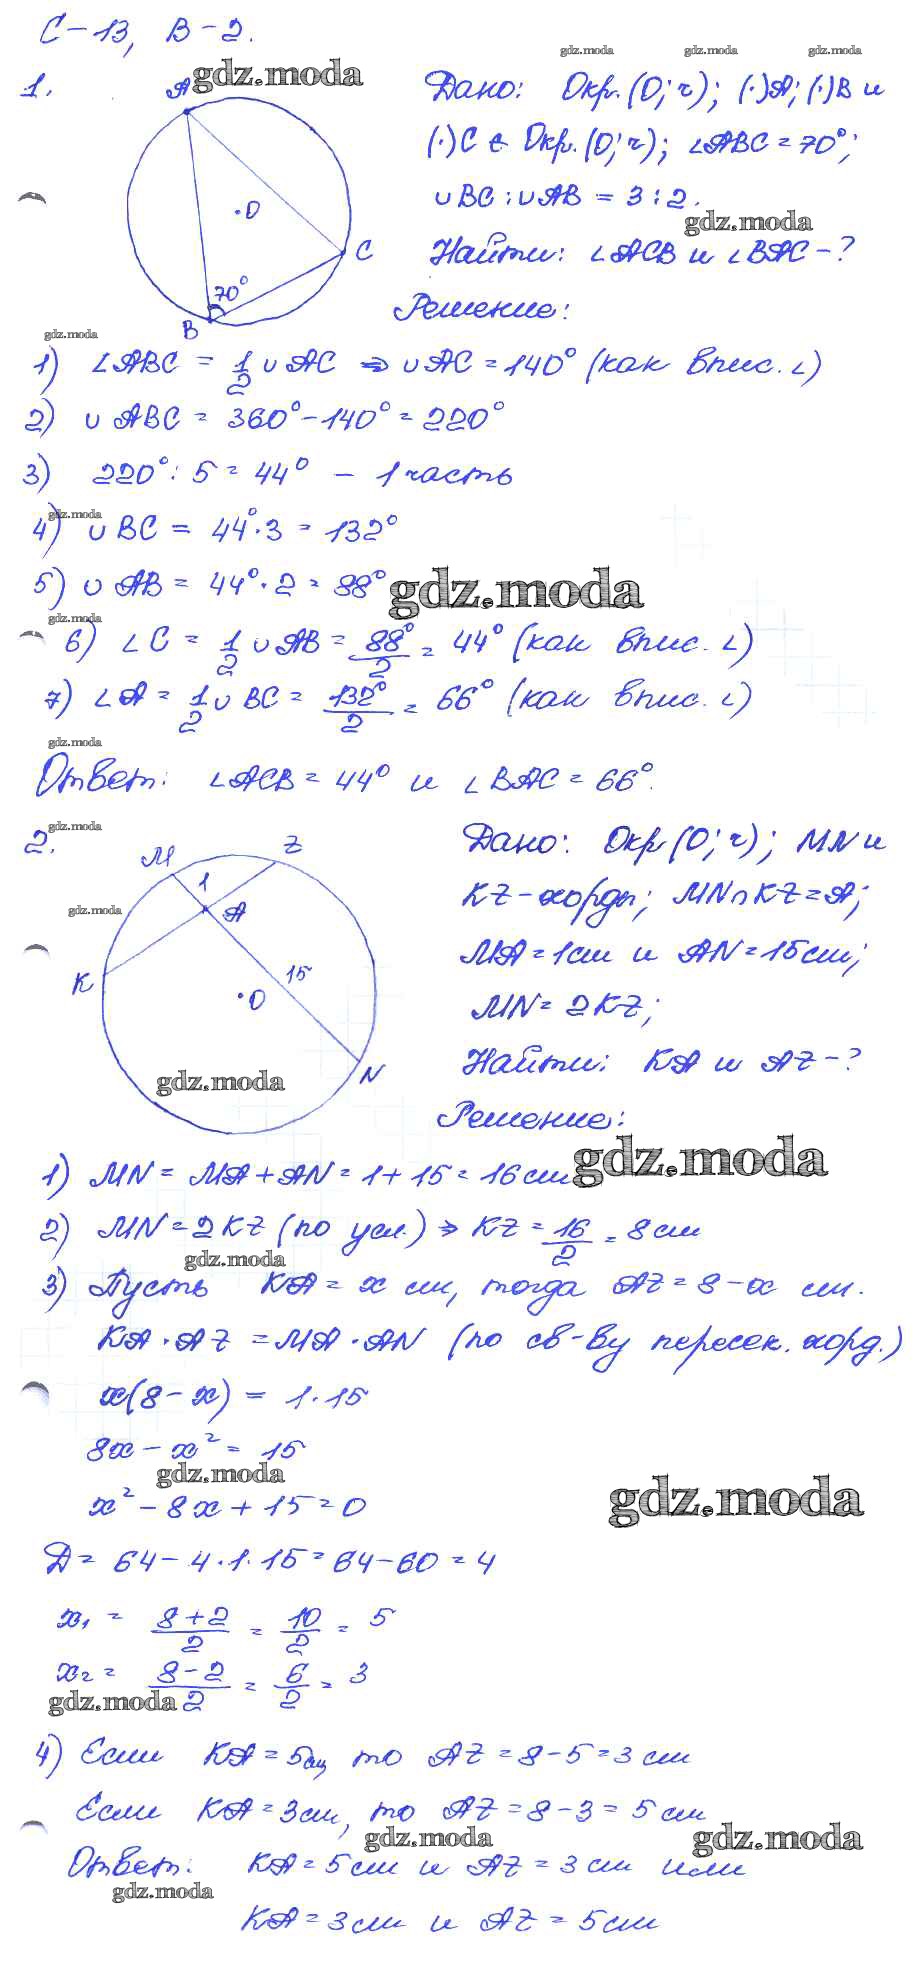 С-13, В-2.
gdz.moda gdz.moda gdz.moda
1. A gdz.moda Дано: Окр.(O; r); (·)A; (·)B и
(·)C ∈ Окр.(O; r); ∠ABC = 70°;
∪BC : ∪AB = 3 : 2.
O
gdz.moda
C
Найти: ∠ACB и ∠BAC - ?
70°
Решение:
B
gdz.moda
1) ∠ABC = 1/2 ∪ AC ⇒ ∪ AC = 140° (как впис. ∠)
2) ∪ ABC = 360° - 140° = 220°
3) 220° : 5 = 44° - 1 часть
gdz.moda
4) ∪ BC = 44° · 3 = 132°
5) ∪ AB = 44° · 2 = 88°
gdz.moda
gdz.moda
6) ∠C = 1/2 ∪ AB = 88°/2 = 44° (как впис. ∠)
7) ∠A = 1/2 ∪ BC = 132°/2 = 66° (как впис. ∠)
gdz.moda
Ответ: ∠ACB = 44° и ∠BAC = 66°.
gdz.moda
2. M Z Дано: Окр(O; r); MN и
1
KZ - хорды; MN ∩ KZ = A;
gdz.moda
A
MA = 1 см и AN = 15 см;
15
K
O
MN = 2KZ;
N
Найти: KA и AZ - ?
gdz.moda
Решение:
1) MN = MA + AN = 1 + 15 = 16 см
gdz.moda
2) MN = 2KZ (по усл.) ⇒ KZ = 16/2 = 8 см
gdz.moda
3) Пусть KA = x см, тогда AZ = 8 - x см.
KA · AZ = MA · AN (по св-ву пересек. хорд.)
x(8 - x) = 1 · 15
8x - x² = 15
gdz.moda
x² - 8x + 15 = 0
gdz.moda
D = 64 - 4 · 1 · 15 = 64 - 60 = 4
x₁ = 8+2/2 = 10/2 = 5
x₂ = 8-2/2 = 6/2 = 3
gdz.moda
4) Если KA = 5 см, то AZ = 8 - 5 = 3 см
Если KA = 3 см, то AZ = 8 - 3 = 5 см
gdz.moda gdz.moda
Ответ: KA = 5 см и AZ = 3 см или
gdz.moda
KA = 3 см и AZ = 5 см